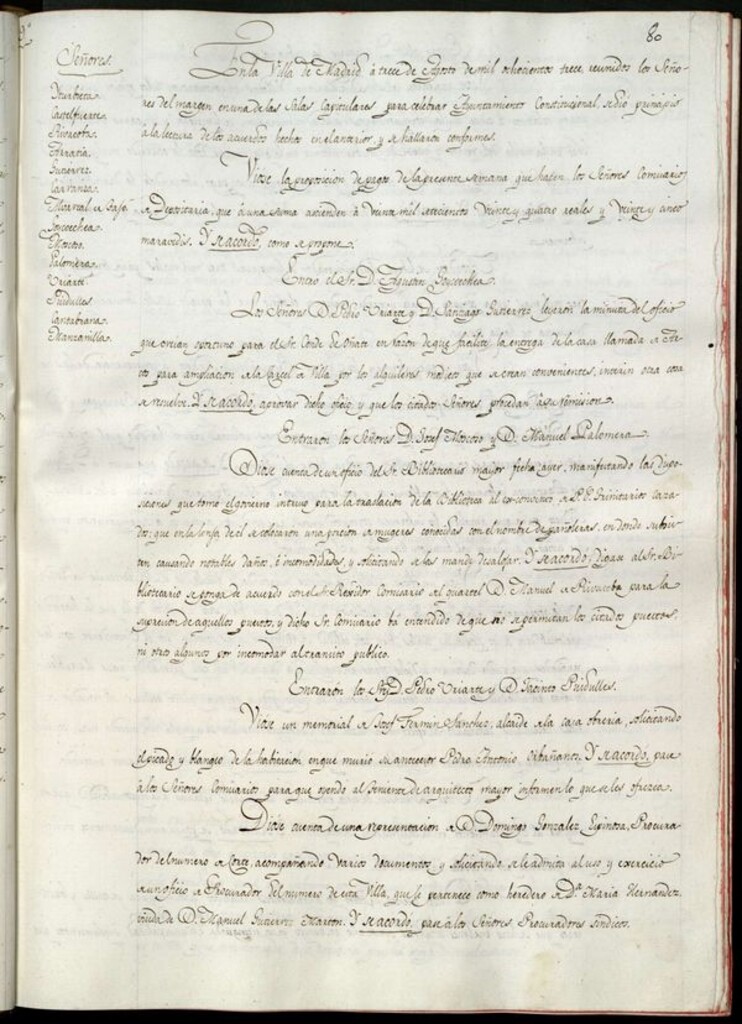 80
Señores
Yturbieta
Castelfuerte
Rivacoba
Arratia
Gutierrez
Carranza
Goycoechea
Moscoso
Palomera
Uriarte
Puidulles
Cantabrana
Manzanilla
En la Villa de Madrid á trece de Agosto de mil ochocientos trece, reunidos los Seño-
res del margen en una de las Salas Capitulares para celebrar Ayuntamiento Constitucional, se dió principio
á la lectura de los acuerdos hechos en el anterior, y se hallaron conformes.
Viose la proposicion de pagos de la presente semana que hacen los Señores Comisarios
de Depositaria, que á una suma ascienden á veinte mil setecientos veinte y quatro reales y veinte y cinco
maravedis. Y se acordó, como se propone.
Entro el Sr. D. Agustin Goycoechea.
Los Señores D. Pedro Uriarte y D. Santiago Gutierrez leyeron la minuta del oficio
que creian oportuno para el Sr. Conde de Oñate en razon de que facilite la entrega de la casa llamada de
para ampliacion de la Carcel de Villa por los alquileres modicos que se crean convenientes, interin otra cosa
se resuelve. Y se acordó, aprovar dicho oficio y que los citados Señores, procedan á su remision.
Entraron los Señores D. Josef Moscoso y D. Manuel Palomera.
Diose cuenta de un oficio del Sr. Bibliotecario mayor fecha ayer, manifestando las dispo-
siciones que tomó el govierno intruso para la traslacion de la Biblioteca al ex-convento de P.P. Trinitarios Calza-
dos; que en la lonja de él se colocaron una porcion de mugeres conocidas con el nombre de pañoleras, en donde subsis-
ten causando notables daños, é incomodidades, y solicitando se las mande desalojar. Y se acordó, digase al Sr. Bi-
bliotecario se ponga de acuerdo con el Sr. Regidor Comisario del quartel D. Manuel de Rivacoba para la
supresion de aquellos puestos, y dicho Sr. Comisario ha entendido de que no se permitan los citados puestos,
ni otros algunos por incomodar al transito publico.
Entraron los Sres. D. Pedro Uriarte y D. Jacinto Puidulles.
Viose un memorial de Josef Fermin Sanchez, alcaide de la casa obreria, solicitando
el picado y blanqueo de la habitacion en que murió su antecesor Pedro Antonio Orbañanos. Y se acordó, pase
á los Señores Comisarios para que oyendo al teniente de arquitecto mayor informen lo que se les ofrezca.
Diose cuenta de una representacion de D. Domingo Gonzalez Espinosa, Procura-
dor del numero de Corte, acompañando varios documentos, y solicitando se le admita al uso y exercicio
de un oficio de Procurador del numero de esta Villa, que le pertenece como heredero de Da. Maria Hernandez
viuda de D. Manuel Gutierrez Marron. Y se acordó, pase á los Señores Procuradores sindicos.